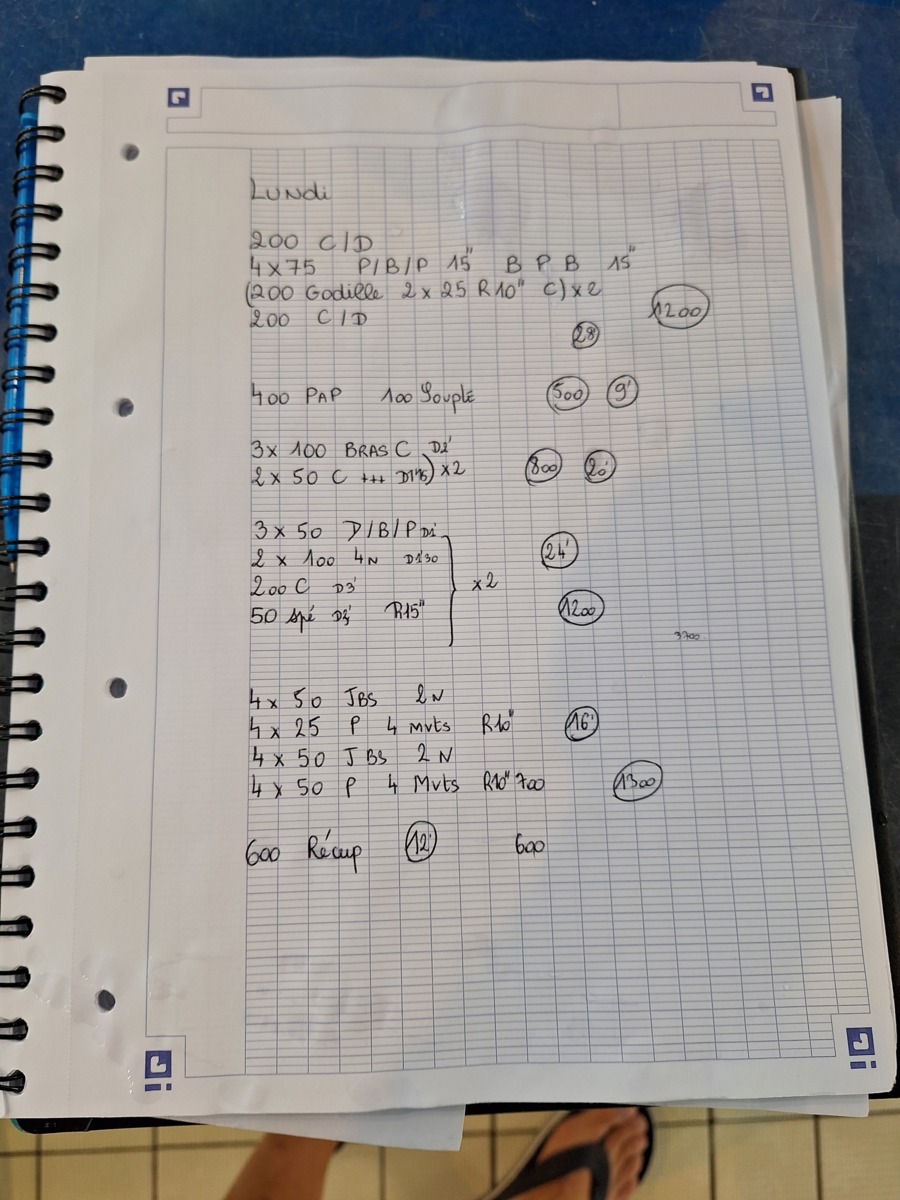 LUNDi
200 C/D
4x75 P/B/P 15" B P B 15"
(200 Godille 2 x 25 R10" C) x 2
200 C/D 1200
28'
400 PAP 100 Souple 500 9'
3x 100 BRAS C D2'
2 x 50 C +++ D1'15) x2 800 20'
3 x 50 D/B/P D1'
2 x 100 4N D1'30 24'
200 C D3' x2
50 spé R15" 1200
3700
4x 50 JBS 2N
4x 25 P 4 Mvts R10" 16'
4 x 50 JBS 2N
4 x 50 P 4 Mvts R10" 700 1300
600 Récup 12' 600